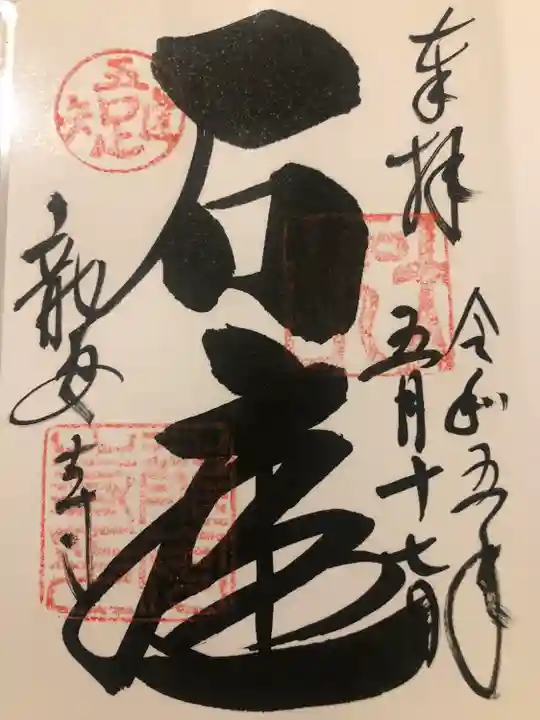 奉拝
令和五年
五月十七日
石庭
龍安寺
吾唯足知